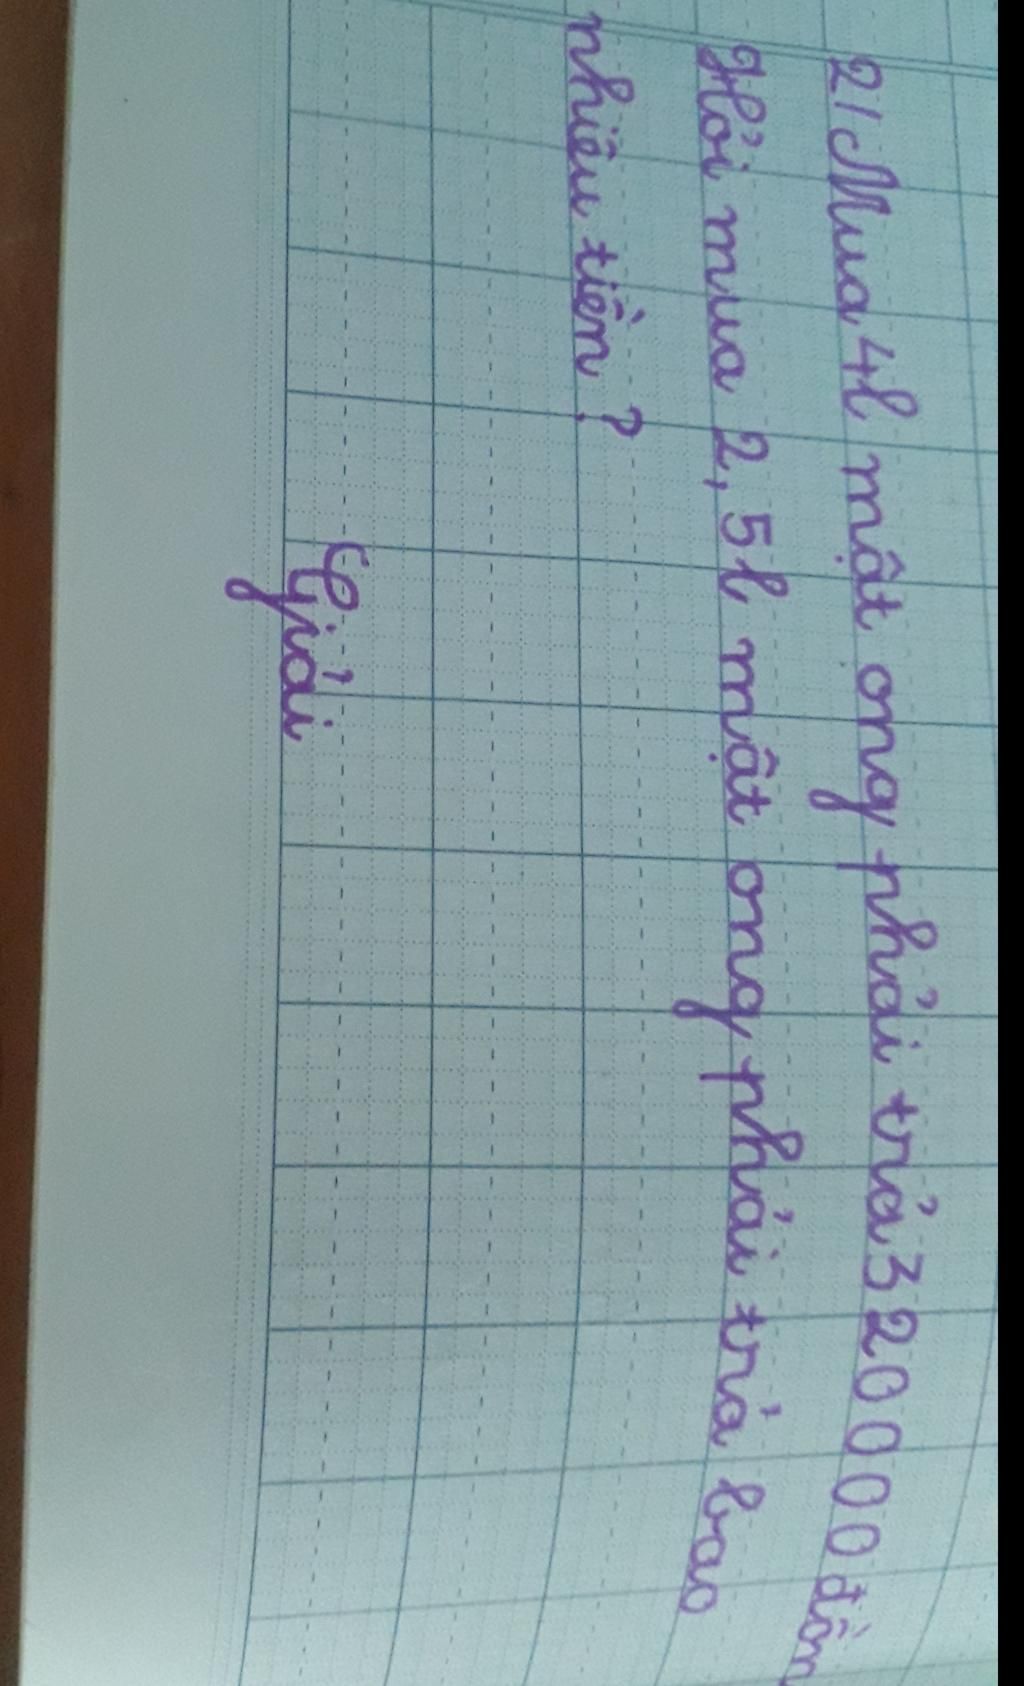 2/ Mua 4l mật ong phải trả 320000 đồn
Hỏi mua 2,5l mật ong phải trả bao
nhiêu tiền ?
Giải